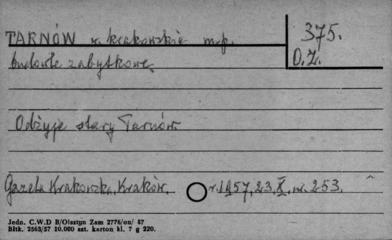 TARNÓW w. krakowskie m.p.
375.
budowle zabytkowe.
O.Z.
Odżyje stary Tarnów.
Gazeta Krakowska, Kraków. r. 1957, 23.X, nr. 253.
Jedn. C.W.D B/Olsztyn Zam 2776/on/ 57
Bltk. 2563/57 10.000 szt. karton kl. 7 g 220.